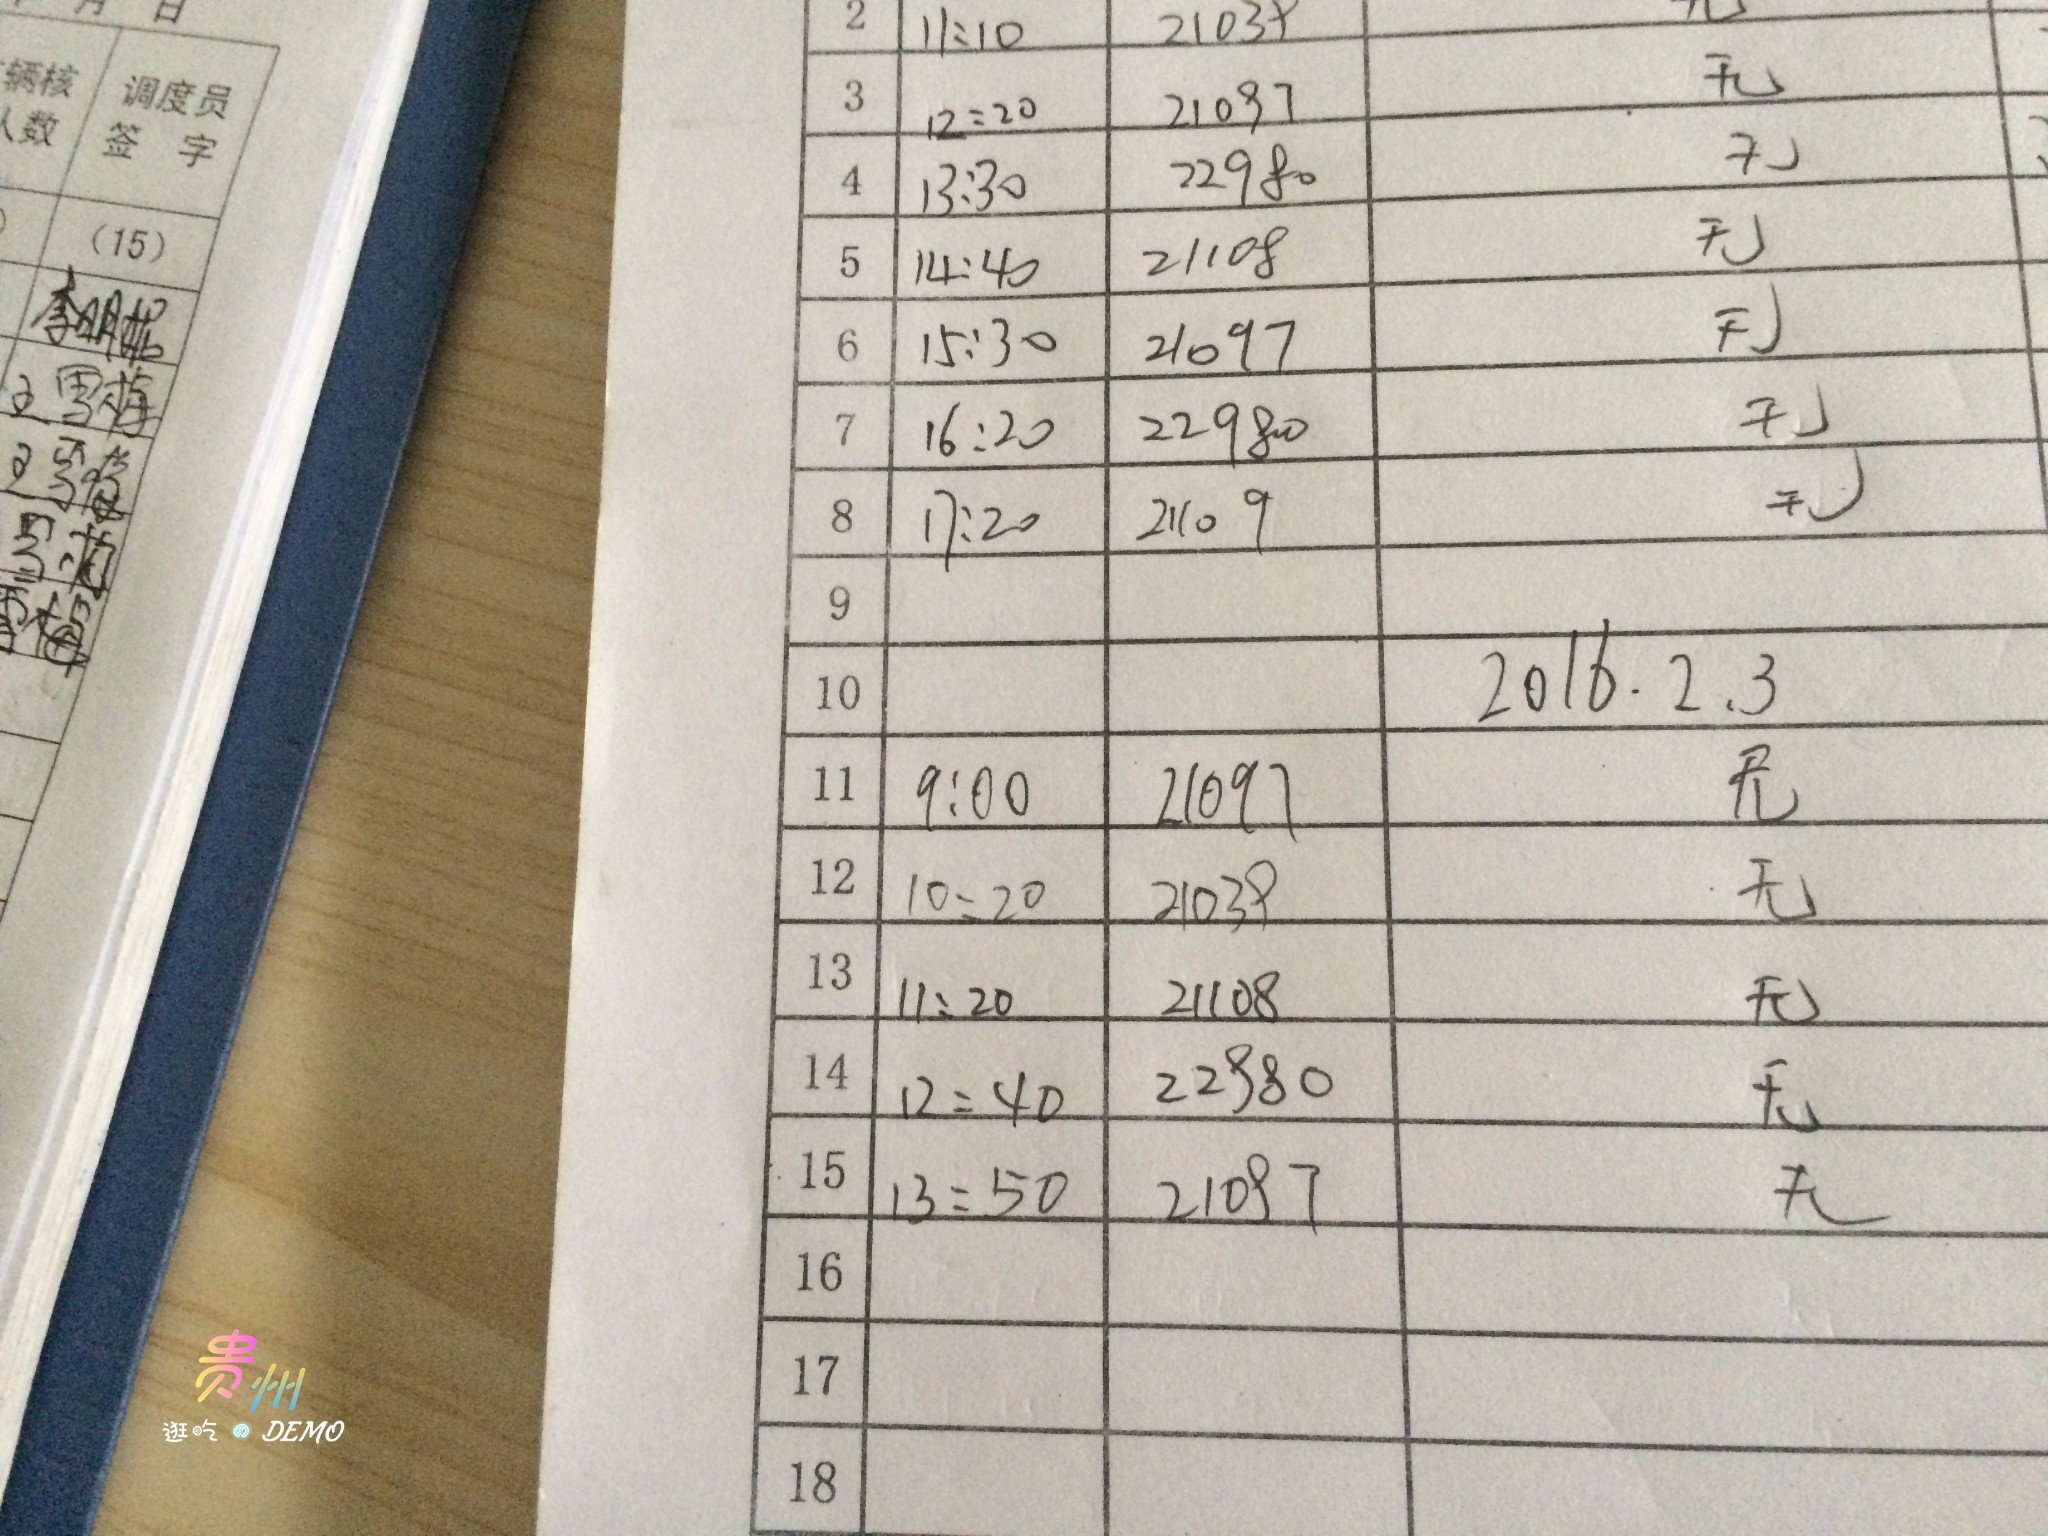 月 日
辆核
人数
调度员
签 字
(15)
2 11:10 21038 无
3 12:20 21097 无
4 13:30 22980 无
5 14:40 21108 无
6 15:30 21097 无
7 16:20 22980 无
8 17:20 21109 无
9
10 2016.2.3
11 9:00 21097 无
12 10:20 21038 无
13 11:20 21108 无
14 12:40 22980 无
15 13:50 21097 无
16
17
18
贵州
逛吃@DEMO